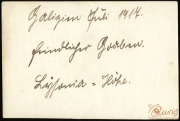 Galizien Juli 1917.
feindlicher Graben.
Lysonia = Höhe.